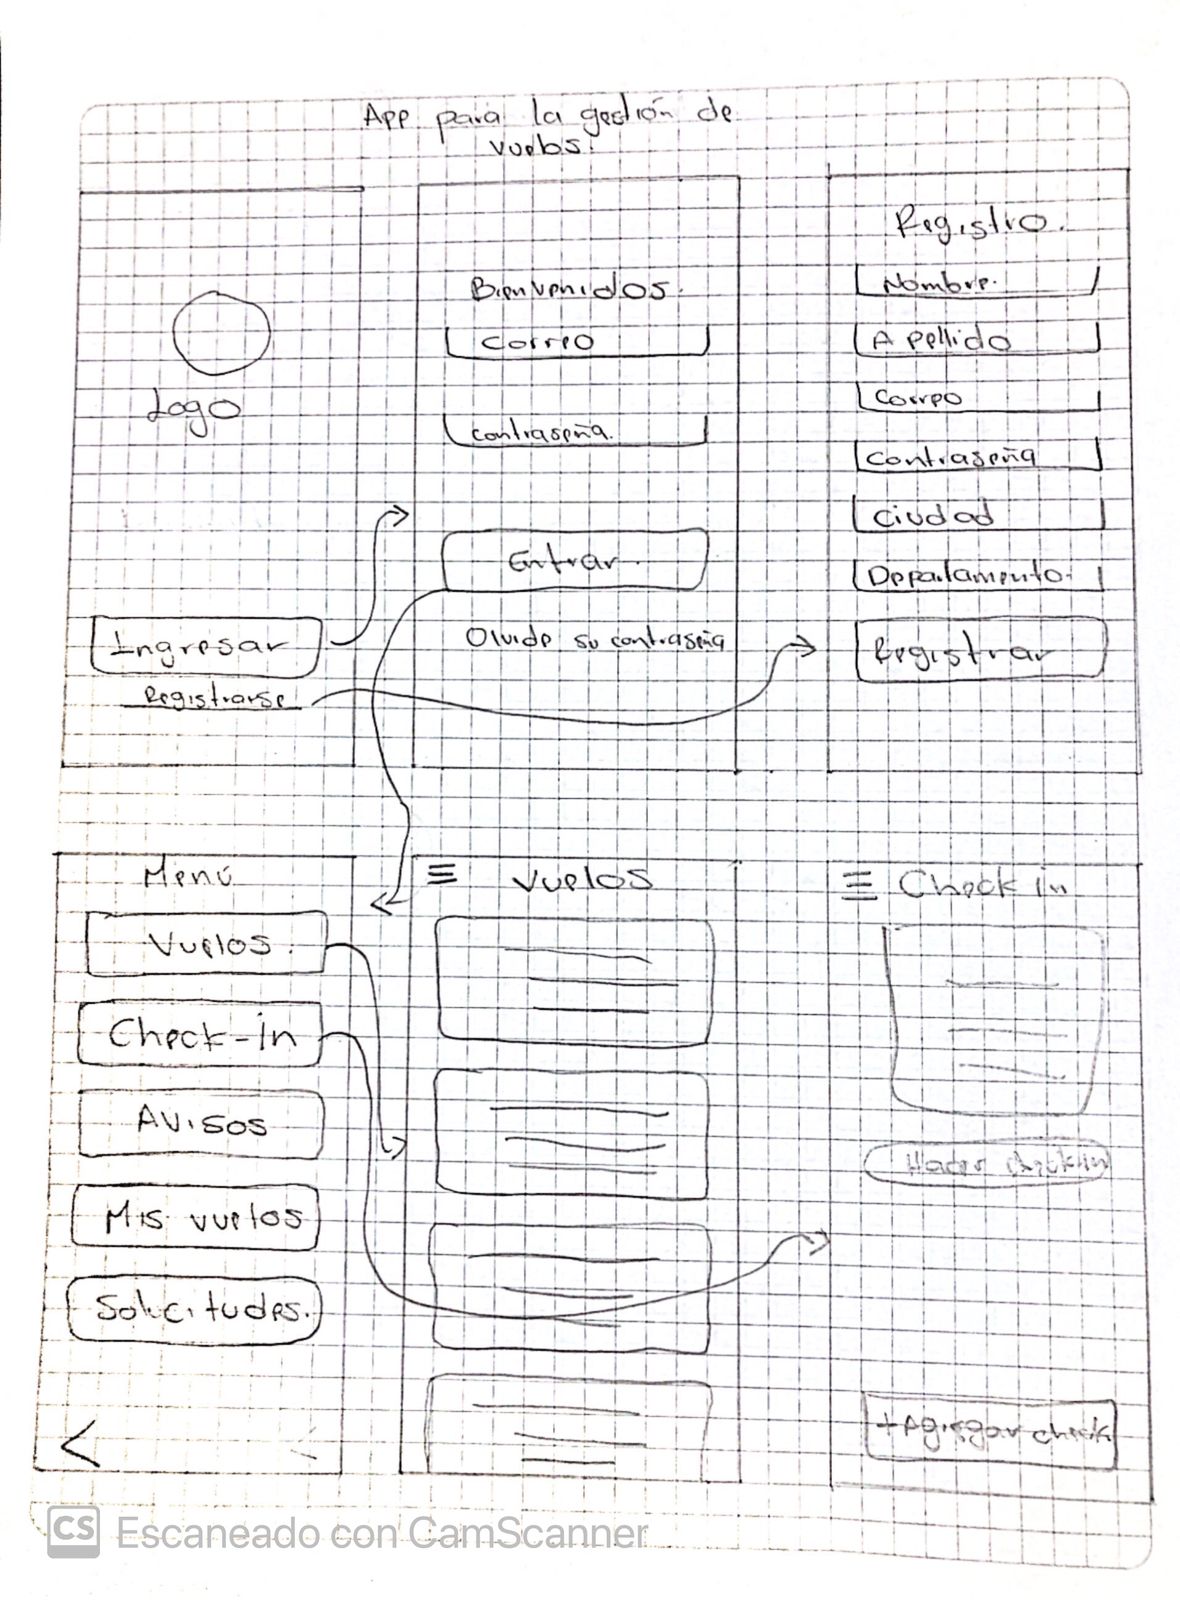 App para la gestión de
vuelos.
Logo
Ingresar
Registrarse
Bienvenidos.
Correo
contraseña.
Entrar.
Olvide su contraseña
Registro.
Nombre.
Apellido
Correo
Contraseña
Ciudad
Departamento.
Registrar
Menú
Vuelos.
Check-in
Avisos
Mis vuelos
Solicitudes.
<
☰ Vuelos
☰ Check in
Hacer check in
+Agregar check
CS Escaneado con CamScanner